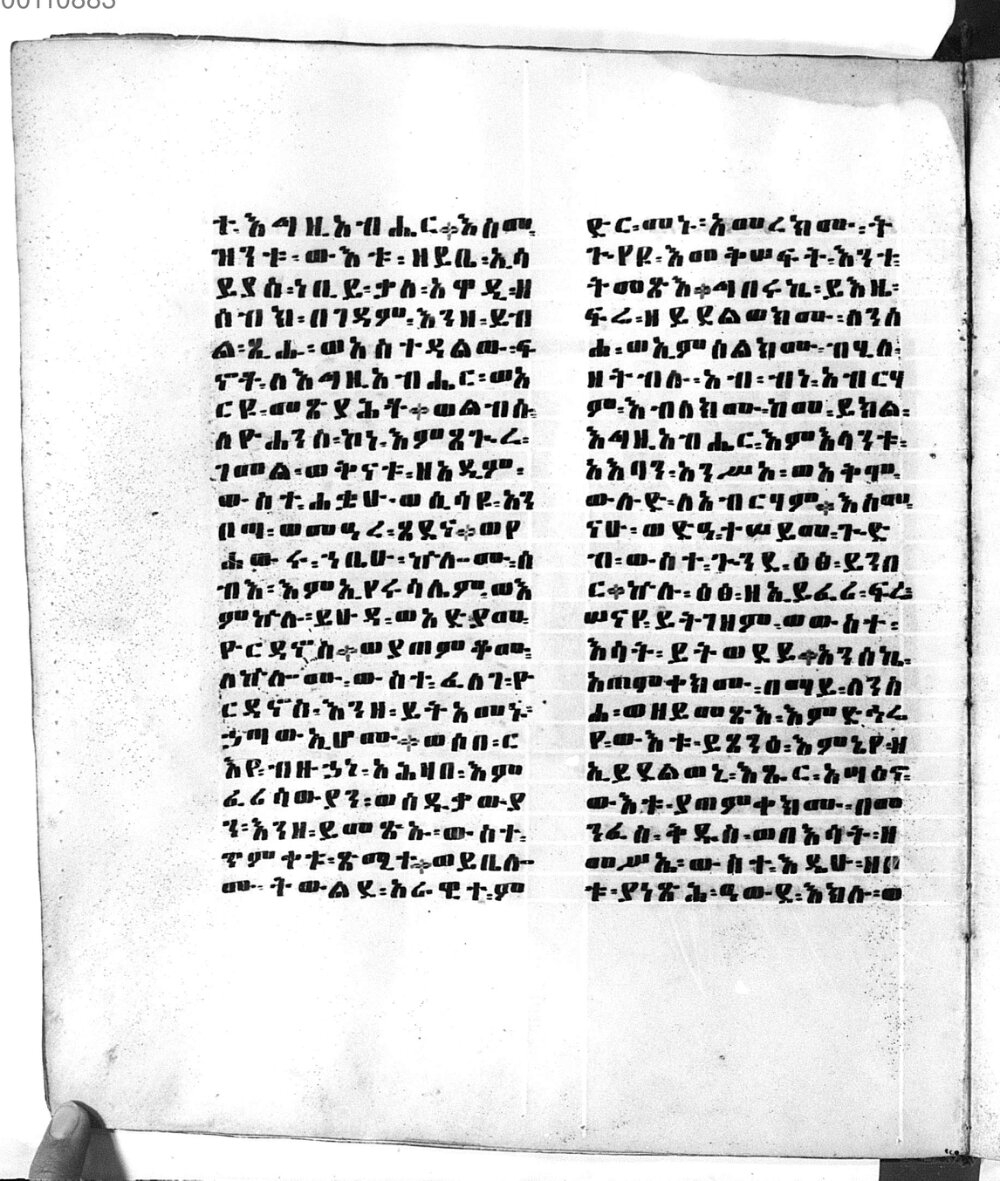 00110883
ተ፡እግዚአብሔር።እስመ፡
ዝንቱ፡ውእቱ፡ዘይቤ፡ኢሳ
ይያስ፡ነቢይ፡ቃለ፡አዋዲ፡ዘ
ሰብክ፡በገዳም፡እንዘ፡ይብ
ል፡ጺሑ፡ወአስተዳልው፡ፍ
ኖት፡ለእግዚአብሔር፡ወአ
ርዩ፡መጽያሕቶ።ወልብሱ፡
ለዮሐንስ፡ኮነ፡እምጸጉረ፡
ገመል፡ወቅናቱ፡ዘአዲም፡
ውስተ፡ሐቋሁ፡ወሲሳዩ፡አን
በጣ፡ወመዓረ፡ጸደና።ወየ
ሐውሩ፡ኀቤሁ፡ኵሎሙ፡ሰ
ብእ፡እምኢየሩሳሌም፡ወእ
ምኵሉ፡ይሁዳ፡ወአድያመ፡
ዮርዳኖስ።ወያጠምቆሙ፡
ለኵሎሙ፡ውስተ፡ፈለገ፡ዮ
ርዳኖስ፡እንዘ፡ይትአመኑ፡
ኃጣውኢሆሙ።ወሶበ፡ር
እየ፡ብዙኃነ፡አሕዛበ፡እም
ፈሪሳውያን፡ወሰዱቃውያ
ን፡እንዘ፡ይመጽኡ፡ውስተ፡
ጥምቀቱ፡ጽሚተ።ወይቤሎ
ሙ፡ትውልደ፡አራዊተ፡ም
ድር፡መኑ፡አመረክሙ፡ት
ጉየዩ፡እመቅሠፍት፡እንተ፡
ትመጽእ።ግበሩኬ፡ይእዜ፡
ፍሬ፡ዘይደልወክሙ፡ለንስ
ሐ፡ወኢምሰልክሙ፡ብሂለ፡
ዘትብሉ፡አብ፡ብነ፡አብርሃ
ም፡እብለክሙ፡ከመ፡ይክል፡
እግዚአብሔር፡እምእላንቱ፡
አእባን፡አንሥአ፡ወአቅም፡
ውሉድ፡ለአብርሃም።እስመ፡
ናሁ፡ወድአ፡ተሠይመ፡ጉድ
ብ፡ውስተ፡ጉንደ፡ዕፀ፡ይንበ
ር።ኵሉ፡ዕፀ፡ዘኢይፈሪ፡ፍሬ፡
ሠናየ፡ይትገዘም፡ወውስተ፡
እሳት፡ይትወደይ።አንሰኬ፡
አጠምቀክሙ፡በማይ፡ለንስ
ሐ፡ወዘይመጽእ፡እምድኅሬ
የ፡ውእቱ፡ይጸንዕ፡እምኔየ፡ዘ
ኢይደልወኒ፡እጹር፡አሣዕኖ፡
ውእቱ፡ያጠምቀክሙ፡በመ
ንፈስ፡ቅዱስ፡ወበእሳት፡ዘ
መሥኤ፡ውስተ፡እዴሁ፡ዘቦ
ቱ፡ያነጽሕ፡ዓውደ፡እክሉ፡ወ